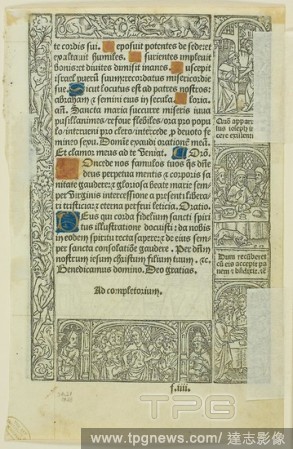 te cordis sui. Deposuit potentes de sede: et
exaltavit humiles. Esurientes implevit
bonis: et divites dimisit inanes. Suscepit
israel puerū suum: recordatus misericordie
sue. Sicut locutus est ad patres nostros:
abraham et semini eius in secula. Gloria.
añ. Sancta maria succurre miseris iuva
pusillanimes: refove flebiles: ora pro popu
lo: interveni pro clero: intercede p devoto fe
mineo sexu. Domie exaudi orationē meā.
Et clamor meus ad te veniat. Orō.
Concede nos famulos tuos qs dñe
deus perpetua mentis et corporis sa
nitate gaudere: et gloriosa beate marie sem
per virginis intercessione a presenti libera
ri tristicia: et eterna perfrui leticia. Oratio.
Deus qui corda fidelium sancti spiri
tus illustratione docuisti: da nobis
in eodem spiritu recta sapere: et de eius sem
per sancta consolatiōe gaudere. Per dñm
nostrum iesum christum filium tuum. &c.
Benedicamus domino. Deo gratias.
Ad completorium.
f.iiii.
Dum recūberet
TPG
www.tpgnews.com / 達志影像